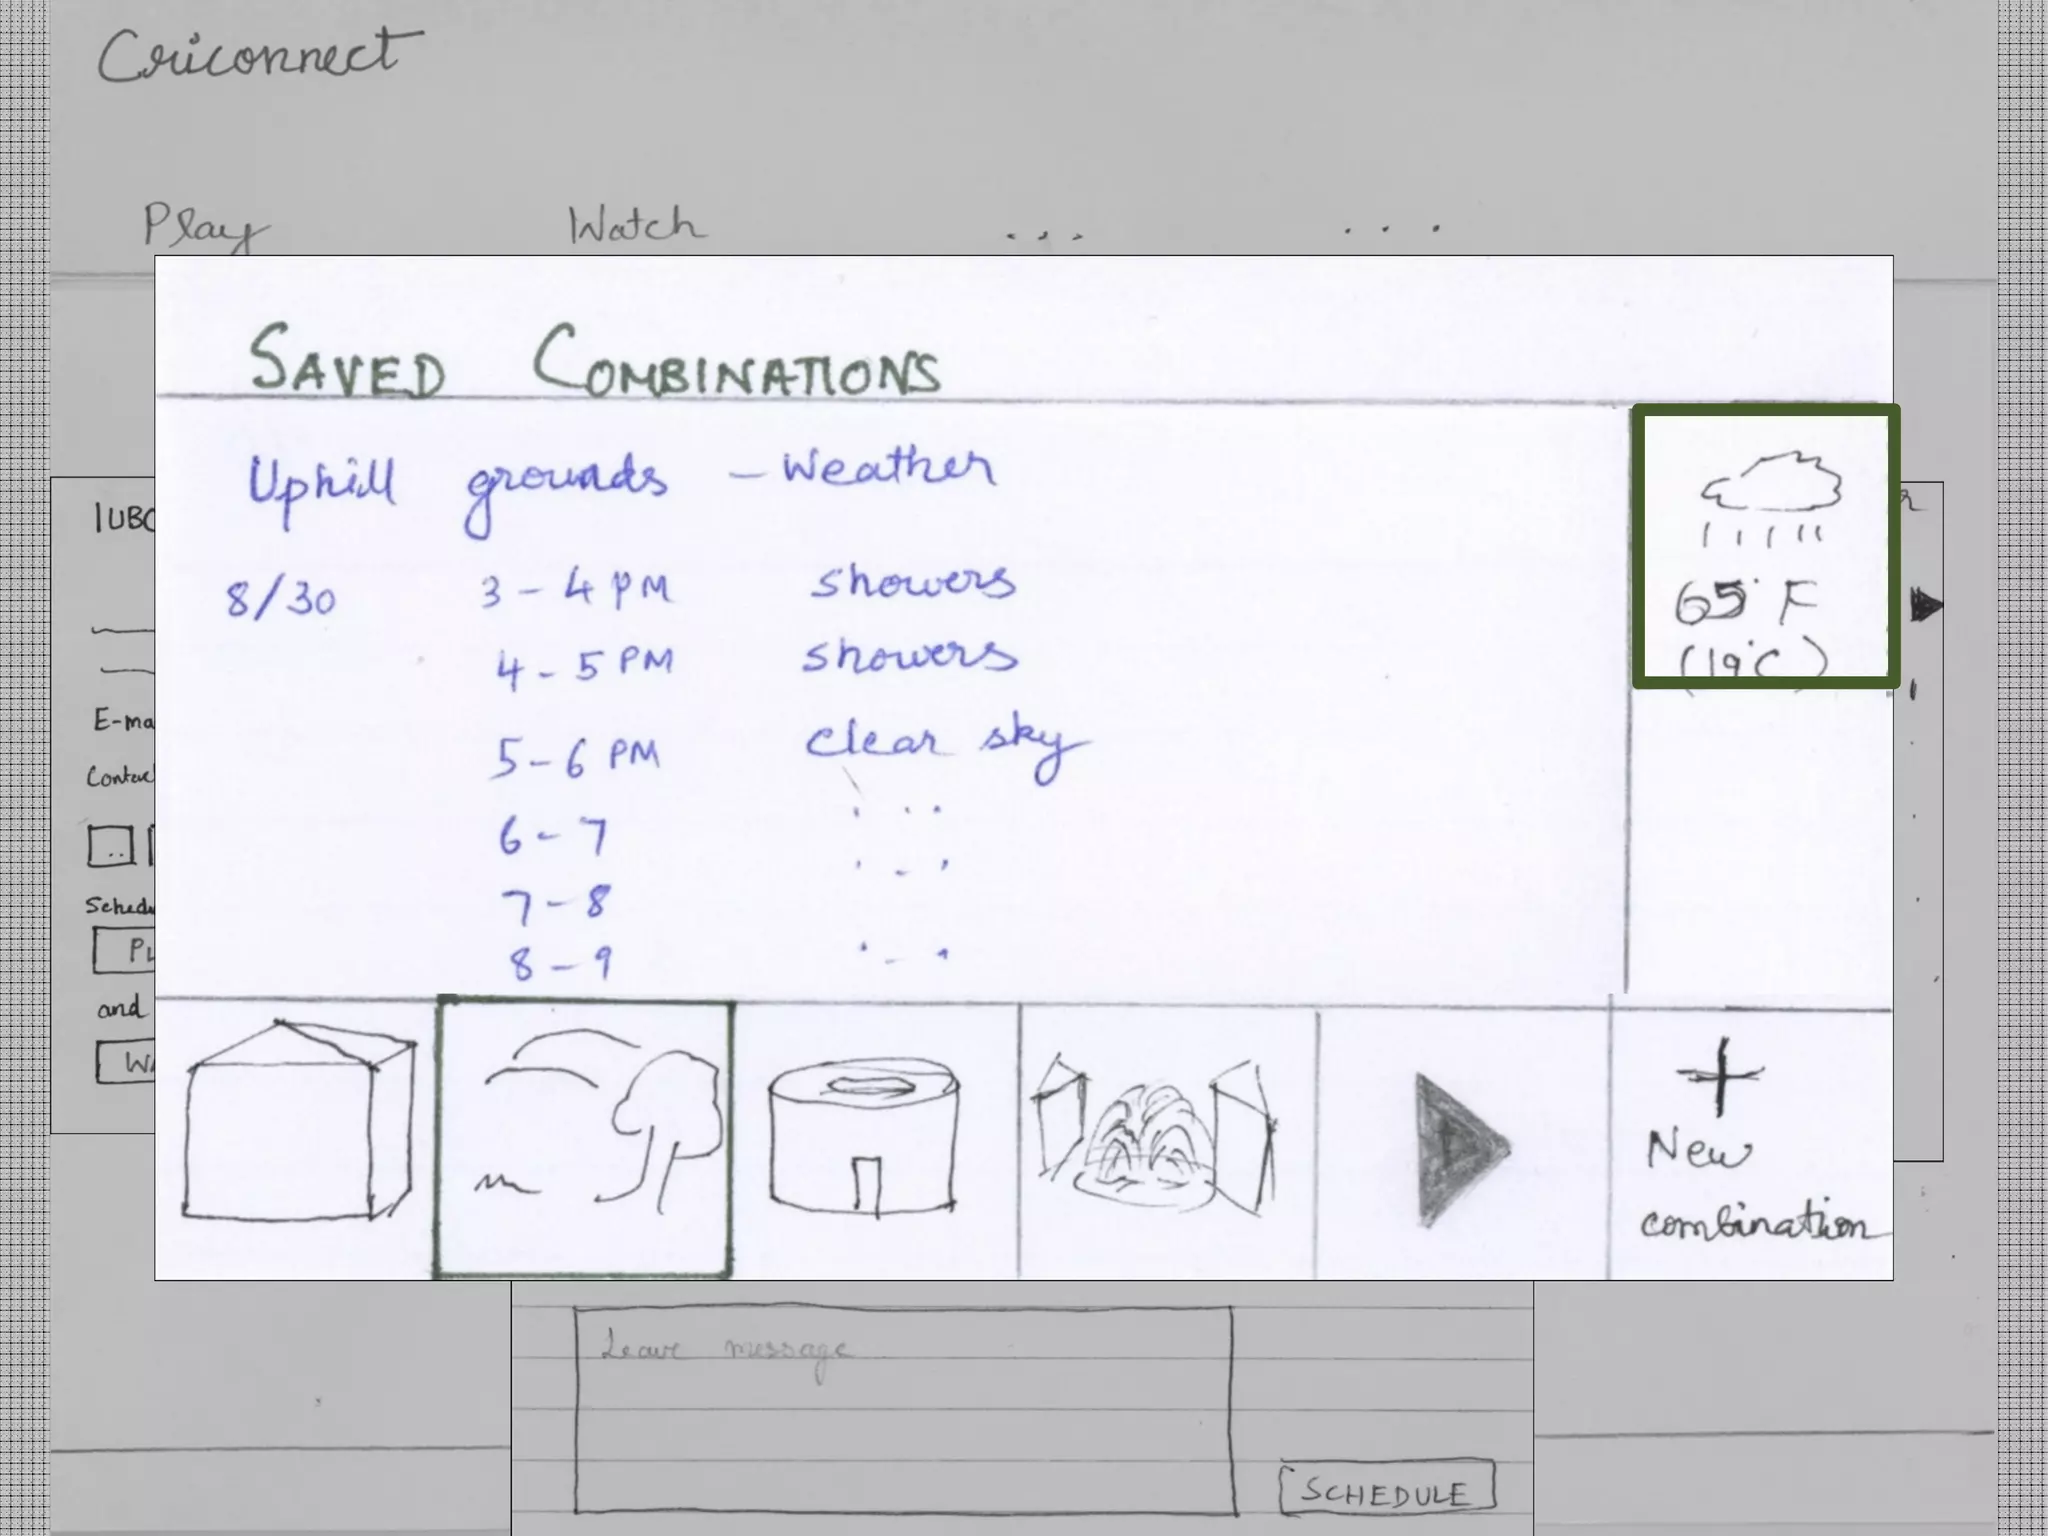 Criconnect
Play Watch ... ...
SAVED COMBINATIONS
Uphill grounds - Weather
8/30 3 - 4 PM showers
4 - 5 PM showers
5 - 6 PM clear sky
6 - 7 ...
7 - 8 ...
8 - 9 ...
65° F
(19°C)
+
New
combination
IUBC
E-ma
Contac
..
Schedu
PL
and
WA
Leave message
SCHEDULE